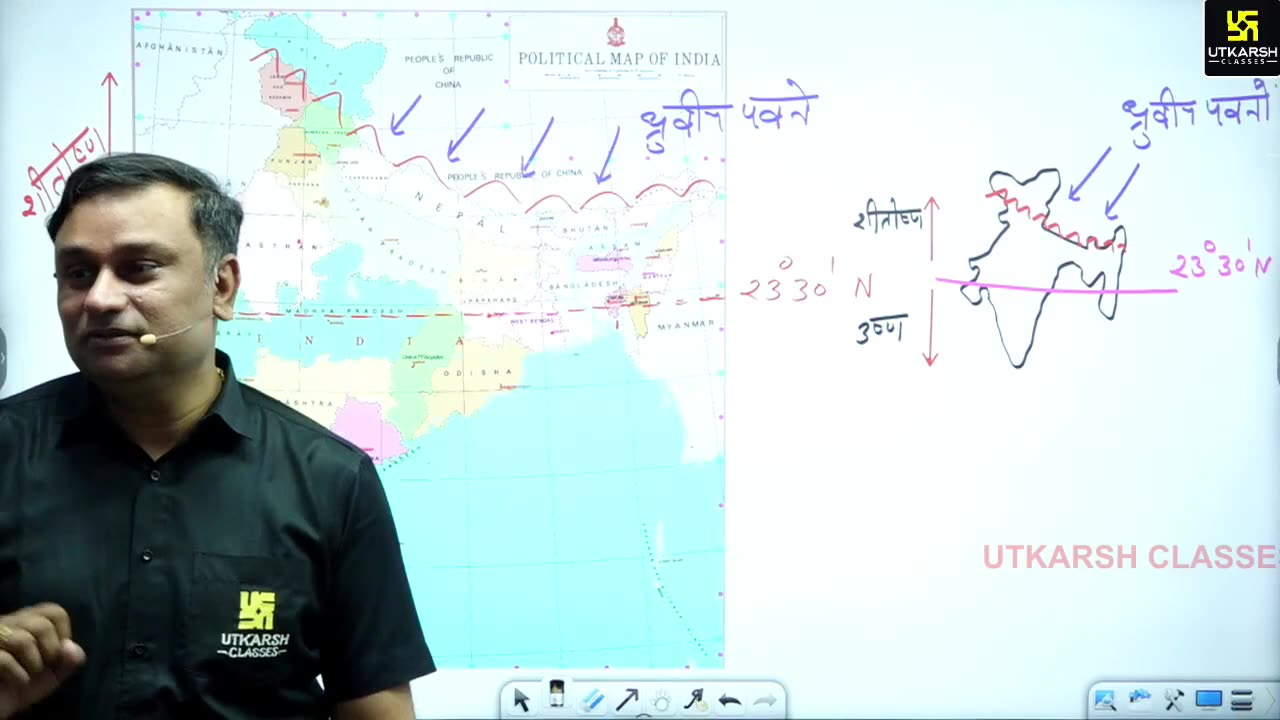 UTKARSH
CLASSES
AFGHĀNISTĀN
PEOPLE'S REPUBLIC
OF
CHINA
POLITICAL MAP OF INDIA
ध्रुवीय पवने
ध्रुवीय पवनों
शीतोष्ण
PUNJAB
PEOPLE'S REPUBLIC OF CHINA
NEPAL
BHUTĀN
शीतोष्ण
23°30' N
UTTAR PRADESH
ASSAM
BANGLADESH
23°30' N
JHARKHAND
MADHYA PRADESH
WEST BENGAL
MYANMAR
उष्ण
INDIA
CHHATTISGARH
ODISHA
UTKARSH CLASSE
UTKARSH
CLASSES